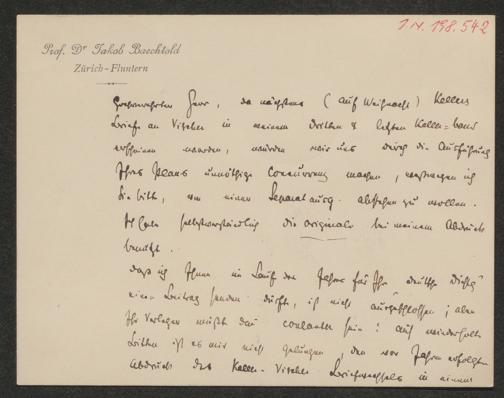 I.N. 198.542
Prof. Dr Jakob Baechtold
Zürich-Fluntern
Hochverehrter Herr, da nächstens (auf Weihnacht) Kellers
Briefe an Vischer in meinem dritten & letzten Keller=band
erscheinen werden, würden wir uns durch die Ausführung
Ihres Plans unnöthige Concurrenz machen, weswegen ich
Sie bitte, von einer Separatausg. absehen zu wollen.
Ich habe selbstverständlich die originale bei meinem Abdruck
benützt.
Dass ich Ihnen im Lauf des Jahres für Ihr "deutsche Dichtg"
einen Beitrag senden dürfte, ist nicht ausgeschlossen; aber
Ihr Verleger müsste dann coulanter sein! Auf wiederholte
Bitten ist es mir nicht gelungen den vor Jahren erfolgten
Abdruck des Keller-Vischer Briefwechsels in einem